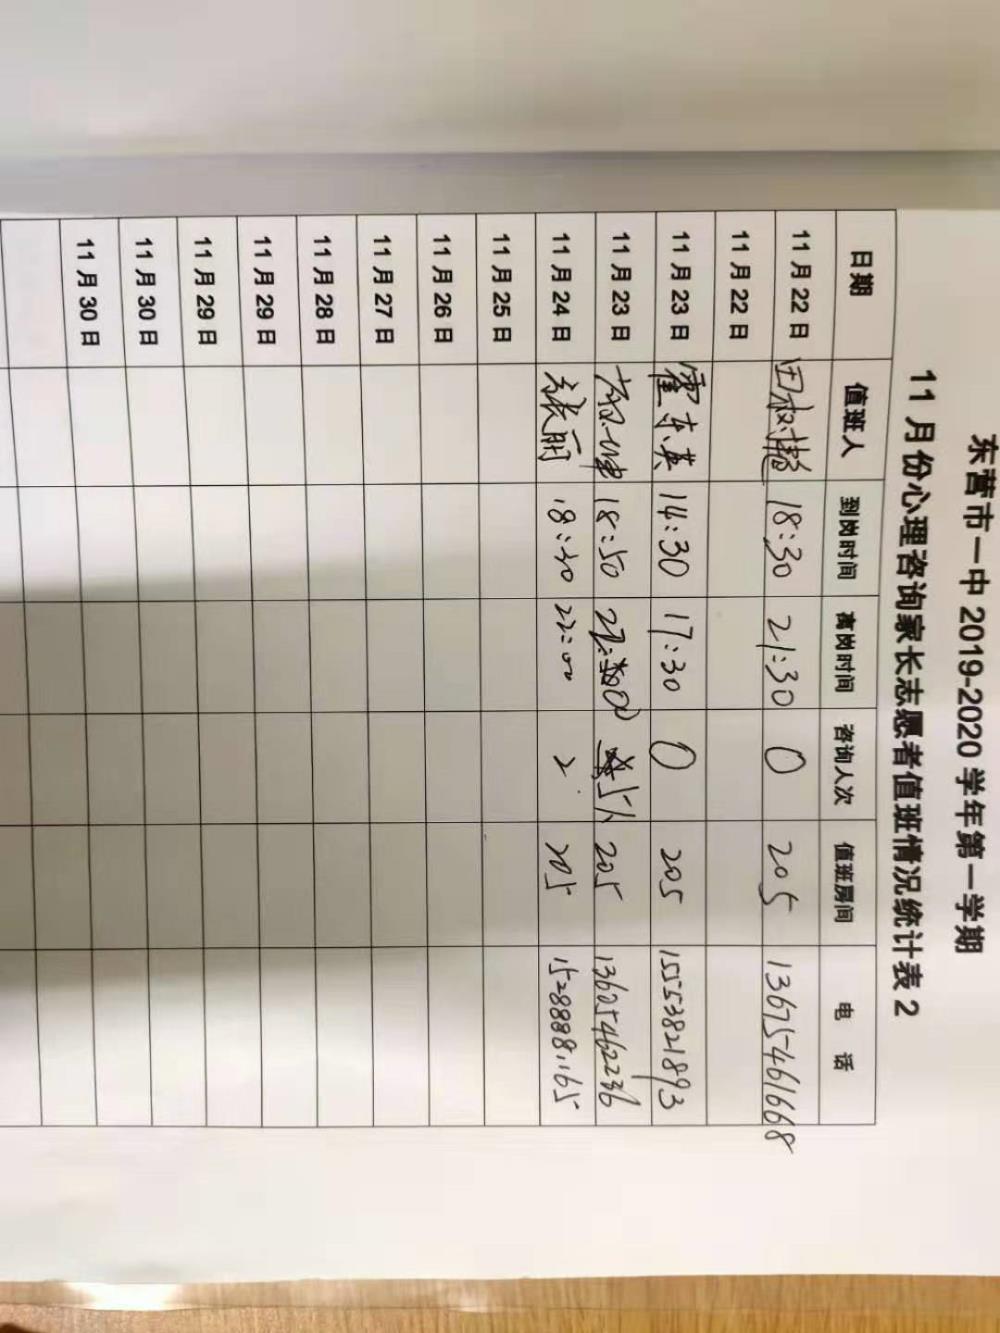 东营市一中 2019-2020 学年第一学期
11 月份心理咨询家长志愿者值班情况统计表 2
日期 值班人 到岗时间 离岗时间 咨询人次 值班房间 电 话
11 月 22 日 田 18:30 21:30 0 205 13675461668
11 月 22 日
11 月 23 日 霍东英 14:30 17:30 0 205 15553821893
11 月 23 日 18:50 205 13605462236
11 月 24 日 张丽 18:30 22:00 2 205 15288881165
11 月 25 日
11 月 26 日
11 月 27 日
11 月 28 日
11 月 29 日
11 月 29 日
11 月 30 日
11 月 30 日